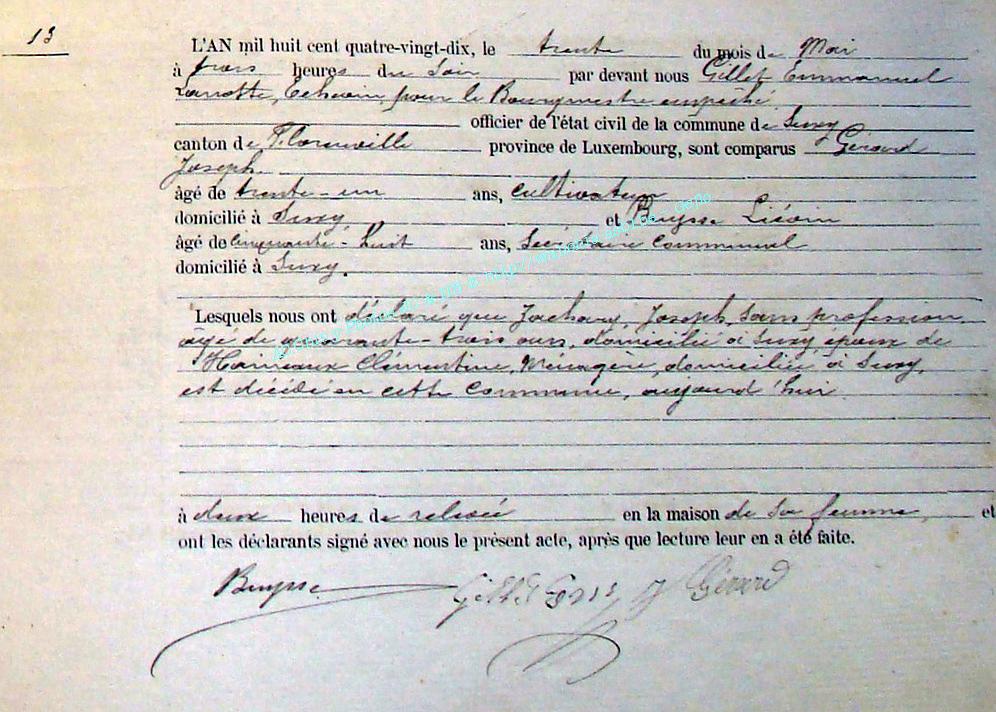 13
L'AN mil huit cent quatre-vingt-dix, le trente du mois de Mai
à trois heures du Soir par devant nous Gillet Emmanuel
Lanotte, Echevin, pour le Bourgmestre empêché
officier de l'état civil de la commune de Suxy
canton de Florenville province de Luxembourg, sont comparus Gérard
Joseph
âgé de trente-un ans, cultivateur
domicilié à Suxy et Buysse Liévin
âgé de cinquante-huit ans, Secrétaire Communal
domicilié à Suxy.
Lesquels nous ont déclaré que Jachary, Joseph, sans profession
âgé de quarante-trois ans, domicilié à Suxy époux de
Hainaux Clémentine, Ménagère, domiciliée à Suxy,
est décédé en cette Commune, aujourd'hui
à deux heures de relevée en la maison de sa femme, et
ont les déclarants signé avec nous le présent acte, après que lecture leur en a été faite.
Buysse Gillet J Gérard